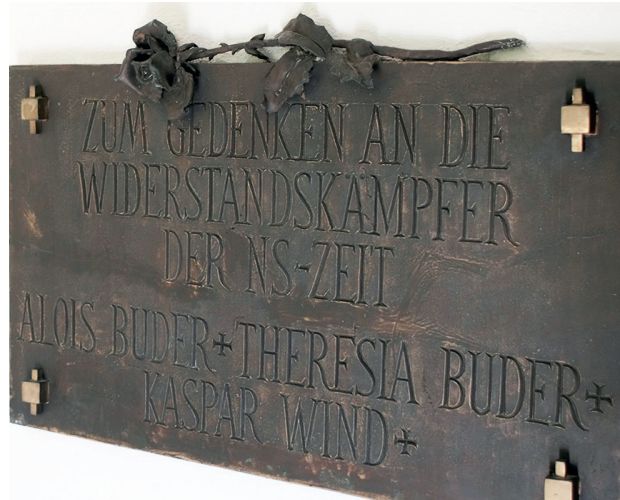 ZUM GEDENKEN AN DIE
WIDERSTANDSKÄMPFER
DER NS-ZEIT
ALOIS BUDER + THERESIA BUDER +
KASPAR WIND +